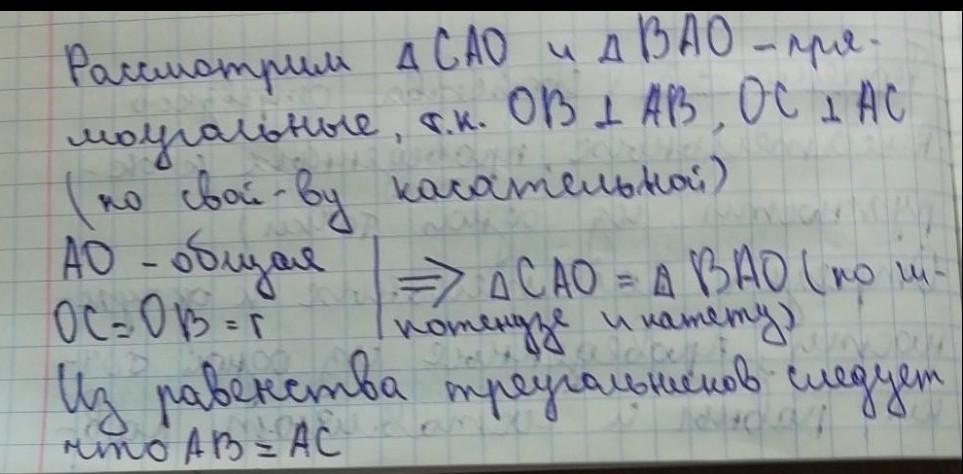 Рассмотрим ΔCAO и ΔBAO – пря-
моугольные, т.к. OB ⊥ AB, OC ⊥ AC
(по свой-ву касательной)
AO – общая | ⇒ ΔCAO = ΔBAO (по ги-
OC = OB = r | потенузе и катету)
Из равенства треугольников следует
что AB = AC